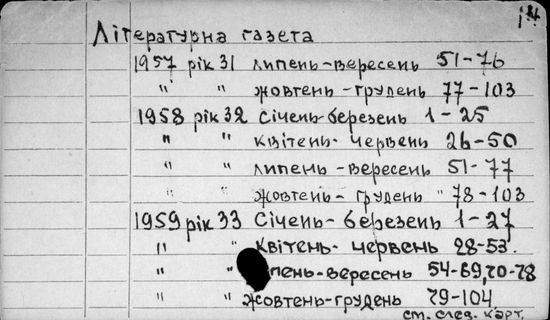 Літературна газета
1957 рік 31 липень-вересень 51-76
" " жовтень-грудень 77-103
1958 рік 32 Січень-березень 1-25
" " квітень-червень 26-50
" " липень-вересень 51-77
" " жовтень-грудень " 78-103
1959 рік 33 Січень-березень 1-27
" " Квітень-червень 28-53.
" " пень-вересень 54-69,70-78
" " жовтень-грудень 79-104
см. след. карт.